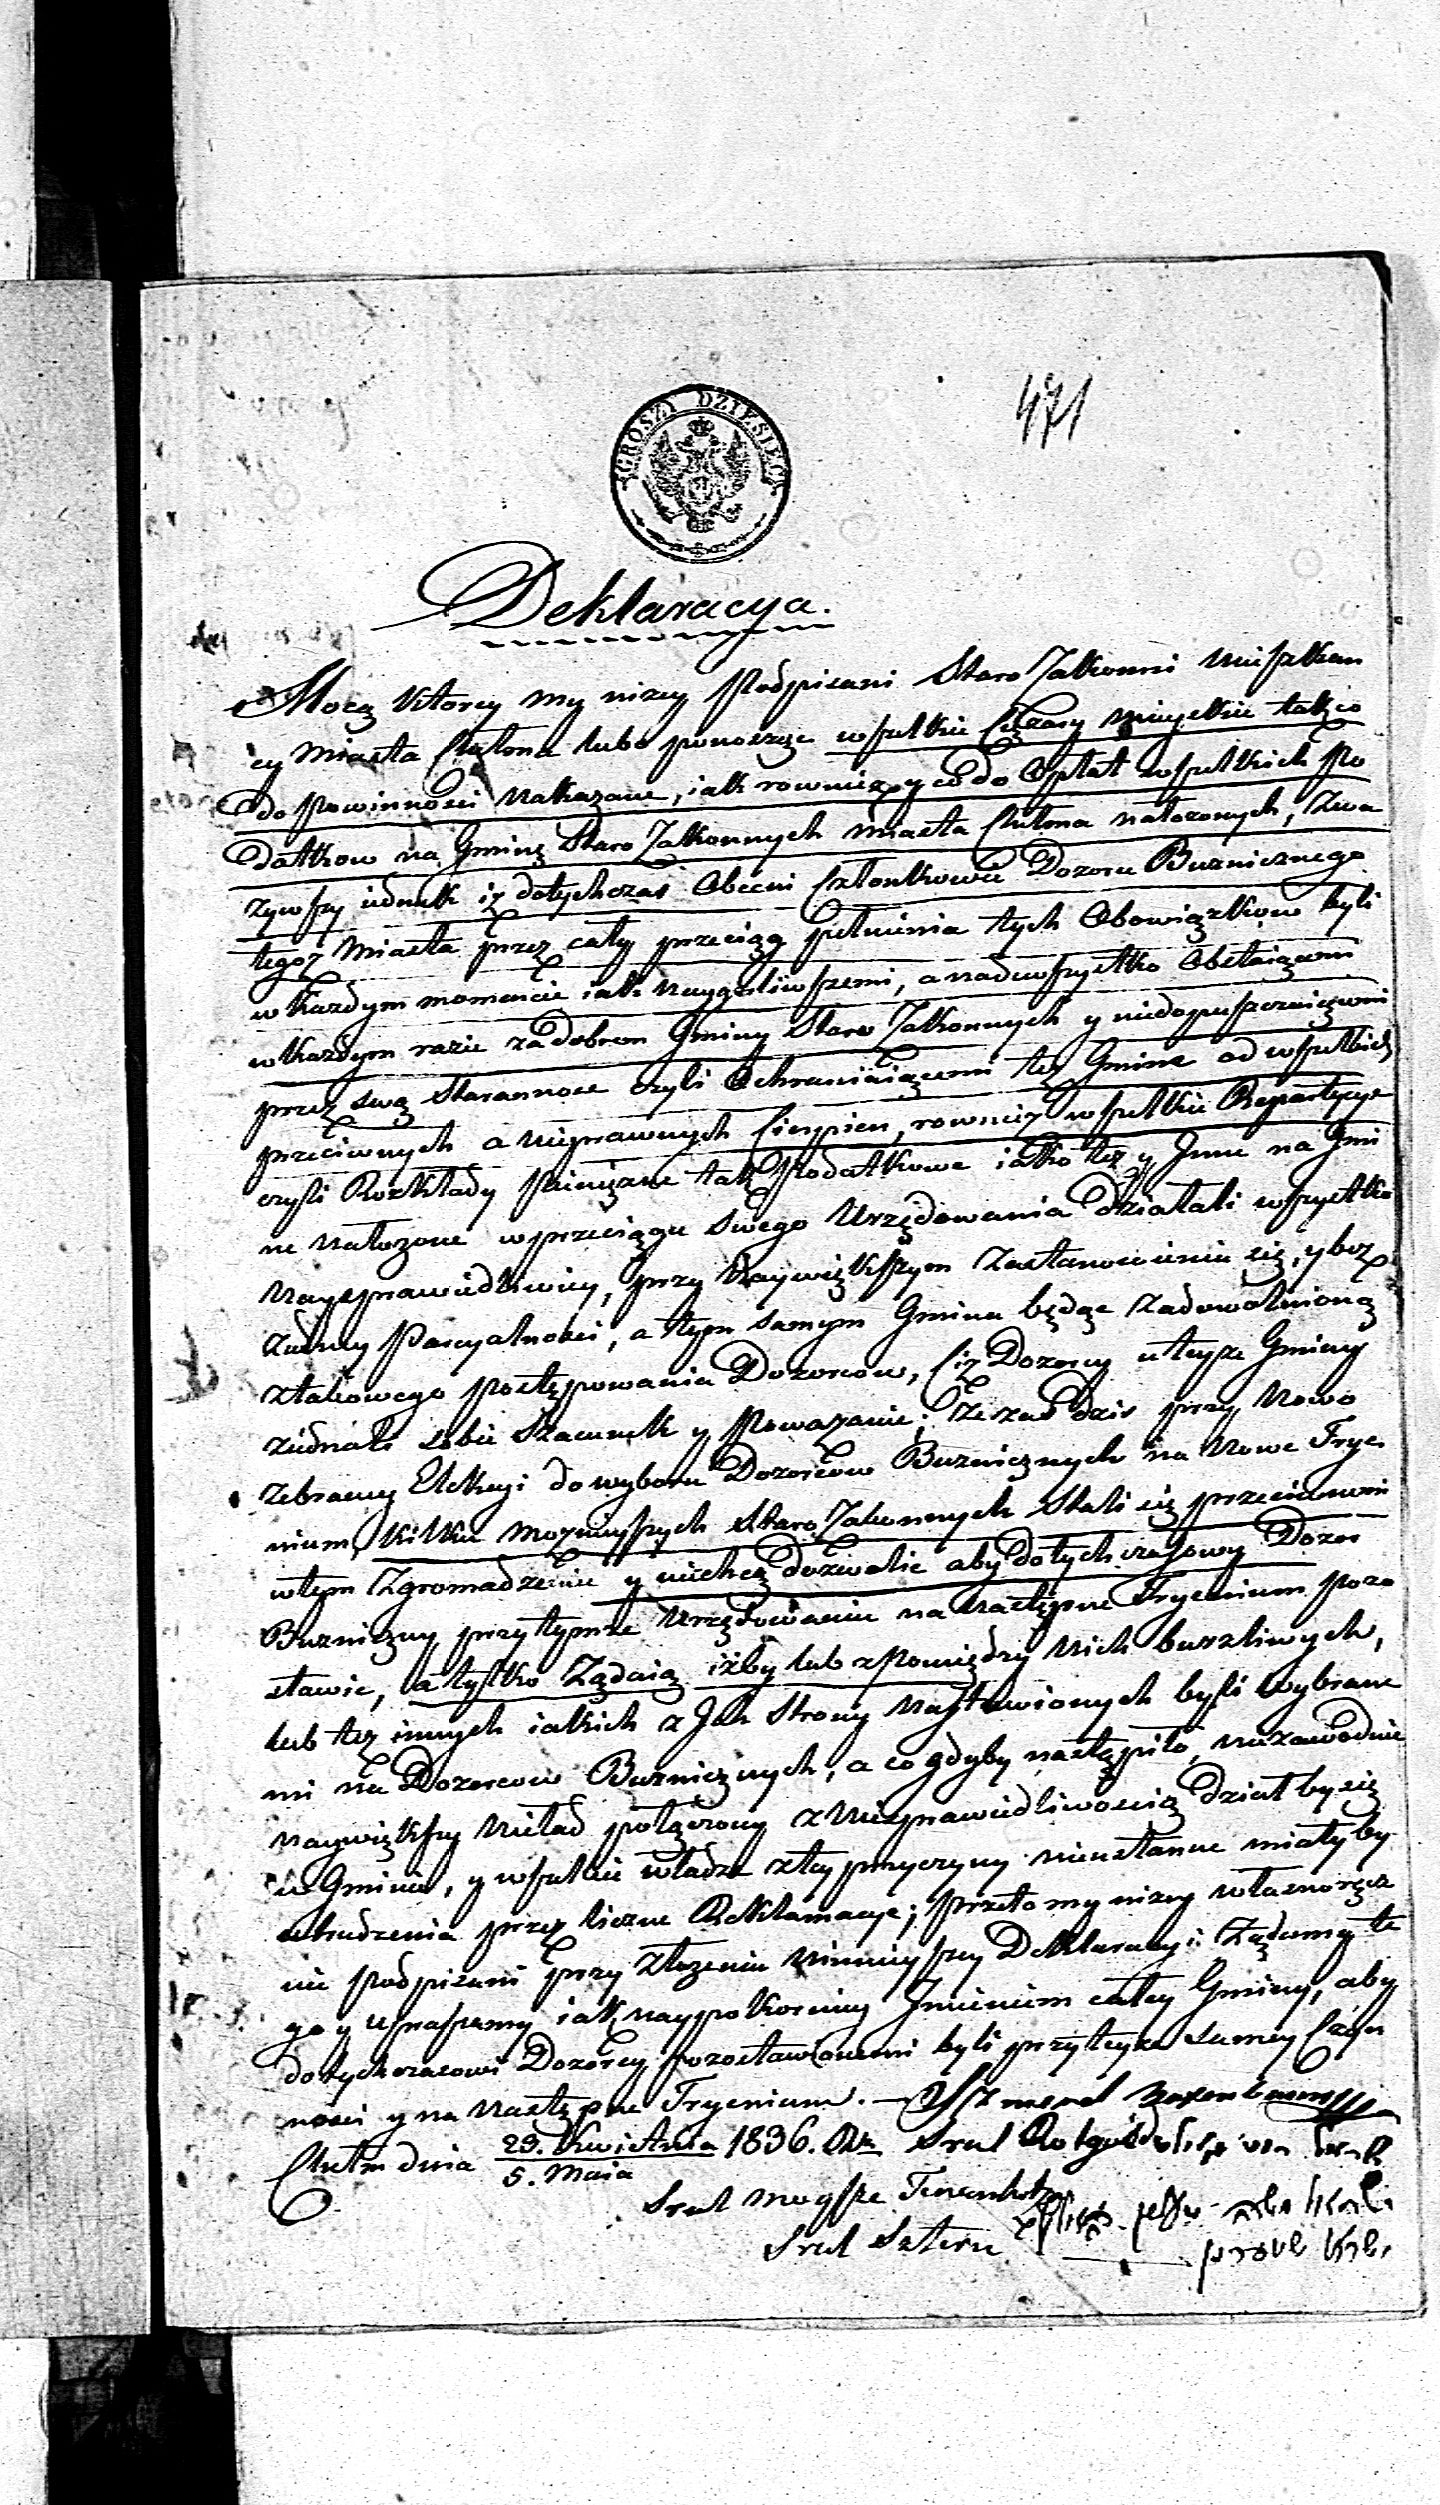 471
GROSZY DZIESIĘĆ
Deklaracya.
Mocą ktorey my niżey Podpisani Staro Zakonni Mieszkań
cy Miasta Chełma lubo ponosząc wszelkie Ciężary mieyskie tak co
do Powinności nakazane, iak rownież y co do Opłat wszelkich Po
datkow na Gminę Staro Zakonnych Miasta Chełma nałożonych, Zwa
żywszy iednak iż dotychczas Obecni Członkowie Dozoru Bużnicznego
tegoż Miasta przez cały przeciąg pełnienia tych Obowiązkow byli
w każdym momencie iak naygorliwszemi, a nadewszystko Obstaiącemi
w każdym razie za dobrem Gminy Staro Zakonnych y niedopuszczaiącemi
przez swą Staranność czyli Ochraniaiącemi tęż Gminę od wszelkich
przeciwnych a nieprawnych Cierpień, rownież wszelkie Repartycye
czyli Rozkłady pieniężne tak Podatkowe iako też y Inne na Gmi
nę nałożone w przeciągu Swego Urzędowania działali wszystko
naysprawiedliwiey, przy naywiększym Zastanowieniu się, y bez
żadney Parcyalności, a tym samym Gmina będąc zadowolnioną
z takowego postępowania Dozorcow, Ciż Dozorcy u teyże Gminy
ziednali sobie Szacunek y Poważanie; Że zaś dziś przy Nowo
Zebraney Elekcyi do wyboru Dozorcow Bużnicznych na Nowe Trye
nium, kilku możnieyszych Staro Zakonnych Stali się przeciwnemi
w tym Zgromadzeniu y niechcą dozwolić aby dotychczasowy Dozor
Bużniczny przy tymże Urzędowaniu na Następne Tryennium pozo
stawić, a tylko Żądaią iżby lub z Pomiędzy Nich burzliwych,
lub też innych iakich z Ich Strony nastawionych byli wybrane
mi na Dozorcow Bużnicznych, a co gdyby nastąpiło, niezawodnie
naywiększy nieład połączony z Niesprawiedliwością działby się
w Gminie, y wszelkie władze z tey przyczyny nieustanne miałyby
utrudzenia przez liczne Reklamacye; przeto my niżey własnoręcz
nie podpisani przy złożeniu ninieyszey Deklaracyi Żądamy te
go y upraszamy iak naypokorniey Imieniem całey Gminy, aby
dotychczasowi Dozorcy pozostawionemi byli przy teyże samey Czyn
ności y na Następne Tryenium. —
Chełm dnia 23. Kwietnia / 5. Maia 1836. Rk Srul
Srul Moyśze
Srul Sztern
ישראל שטערן